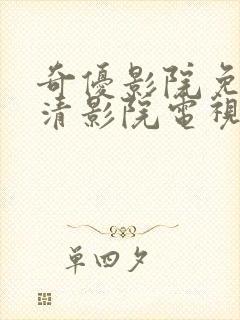 奇優影院免
清影院電視
單四夕